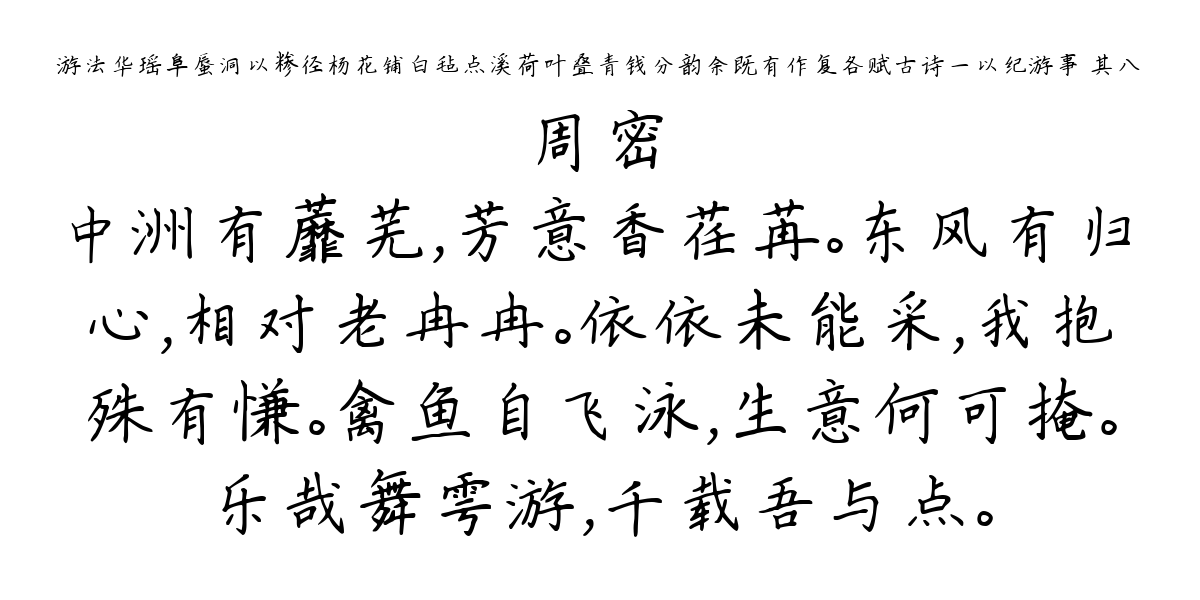 游法华瑶阜蜃洞以糁径杨花铺白毡点溪荷叶叠青钱分韵余既有作复各赋古诗一以纪游事 其八
周密
中洲有蘼芜,芳意香荏苒。东风有归
心,相对老冉冉。依依未能采,我抱
殊有慊。禽鱼自飞泳,生意何可掩。
乐哉舞雩游,千载吾与点。